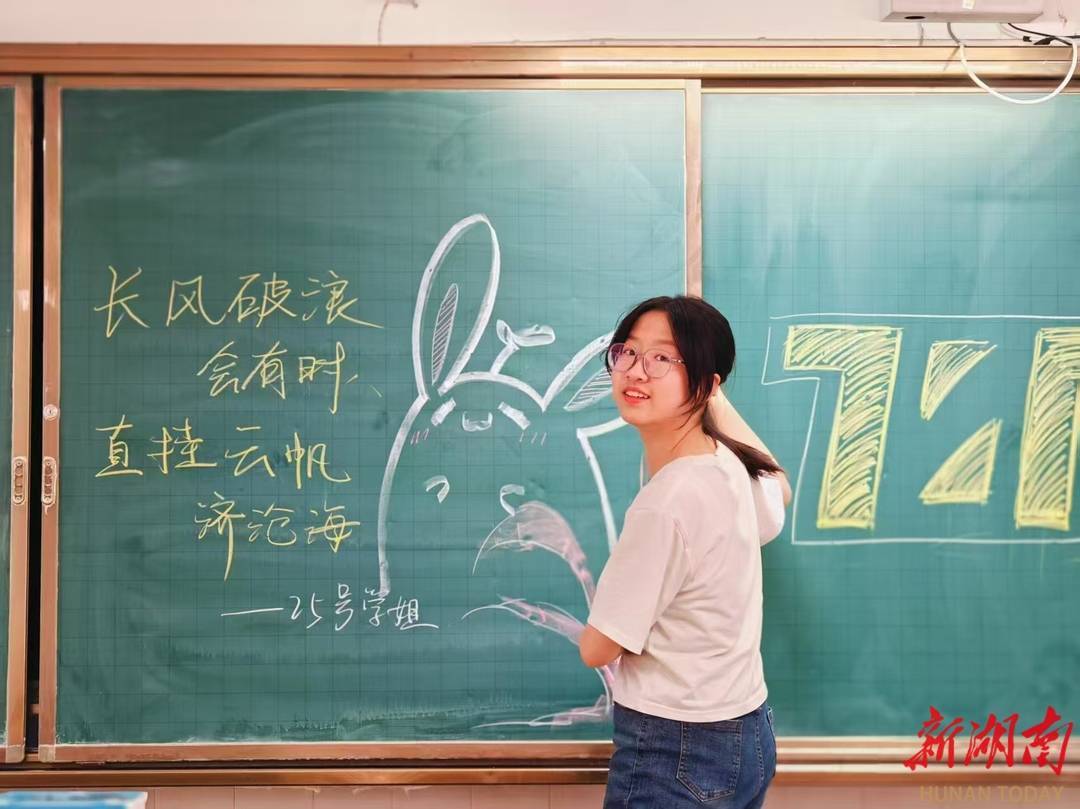 长风破浪
会有时、
直挂云帆
济沧海
——25号学姐
新湖南
HUNAN TODAY